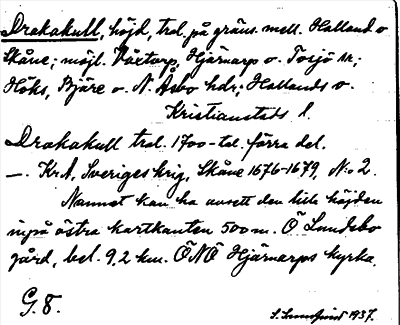 Drakakull, höjd, trol. på gräns. mell. Halland o
Skåne; möjl. Våxtorp, Hjärnarp o. Tosjö sn;
Höks, Bjäre o. N. Åsbo hdr; Hallands o.
Kristianstads l.
Drakakull trol. 1700-tal. förra del.
—. Kr.A, Sveriges krig, Skåne 1676-1679, N:o 2.
Namnet kan ha avsett den lilla höjden
invid östra kartkanten 500 m. Ö Lundsbo
gård, bel. 9,2 km. ÖNÖ Hjärnarps kyrka.
G. 8.
1937.